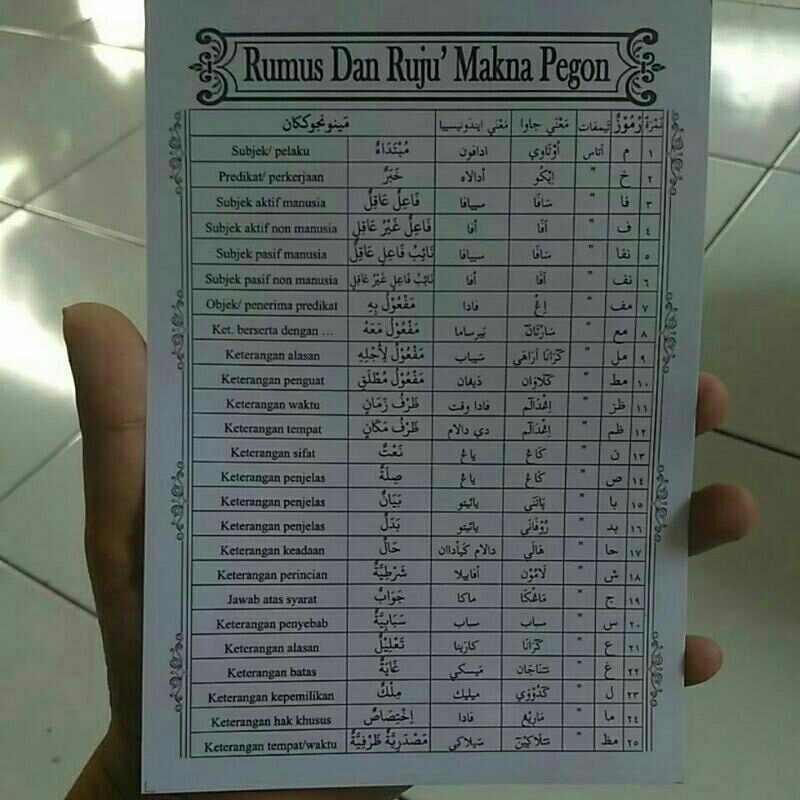 Rumus Dan Ruju' Makna Pegon
نمرة رُمُوْزْ تيمفات مَعْنَي جاوا مَعْنَي ايندونيسيا مَينونجوككان
١ م اتاس أُوْتَاوِي ادافون مُبْتَدَاءٌ Subjek/ pelaku
٢ خ " اِيْكُو أدالاه خَبَرٌ Predikat/ perkerjaan
٣ فا " سَافَا سييافا فَاعِلٌ عَاقِلٌ Subjek aktif manusia
٤ ف " أَفَا أفا فَاعِلٌ غَيْرُ عَاقِلٍ Subjek aktif non manusia
٥ نفا " سَافَا سييافا نَائِبُ فَاعِلٍ عَاقِلٌ Subjek pasif manusia
٦ نف " أَفَا أفا نَائِبُ فَاعِلٍ غَيْرُ عَاقِلٍ Subjek pasif non manusia
٧ مف " اِغْ فادا مَفْعُوْلٌ بِهِ Objek/ penerima predikat
٨ مع " سَارْتَانَ بَيرساما مَفْعُوْلٌ مَعَهُ Ket. berserta dengan ...
٩ مل " كَرَانَا أَرَاهَى سَيباب مَفْعُوْلٌ لِأَجْلِهِ Keterangan alasan
١٠ مط " كَلَاوَان دَيڠان مَفْعُوْلٌ مُطْلَقٍ Keterangan penguat
١١ ظز " اِغْدَالَم فادا وقت ظَرْفُ زَمَانٍ Keterangan waktu
١٢ ظم " اِغْدَالَم دي دالام ظَرْفُ مَكَانٍ Keterangan tempat
١٣ ن " كَاغ ياغ نَعْتٌ Keterangan sifat
١٤ ص " كَاغ ياغ صِلَةٌ Keterangan penjelas
١٥ با " پَاتَنَى يائيتو بَيَانٌ Keterangan penjelas
١٦ بد " رُوْفَانَى يائيتو بَدَلٌ Keterangan penjelas
١٧ حا " هَالَي دالام كَيأداان حَالٌ Keterangan keadaan
١٨ ش " لَامُوْن أفابيلا شَرْطِيَّةٌ Keterangan perincian
١٩ ج " مَاغْكَا ماكا جَوَابٌ Jawab atas syarat
٢٠ س " سباب سباب سَبَابِيَّةٌ Keterangan penyebab
٢١ ع " كَرَانَا كارَينا تَعْلِيْلٌ Keterangan alasan
٢٢ غ " سَنَاجَان مَيسكي غَايَةٌ Keterangan batas
٢٣ ل " كَدُوْوَي ميليك مِلْكٌ Keterangan kepemilikan
٢٤ ما " مَارِيْغ فادا اِخْتِصَاصٌ Keterangan hak khusus
٢٥ مظ " سَلَاكِيْنَ سَيلاكي مَصْدَرِيَّةٌ ظَرْفِيَّةٌ Keterangan tempat/waktu